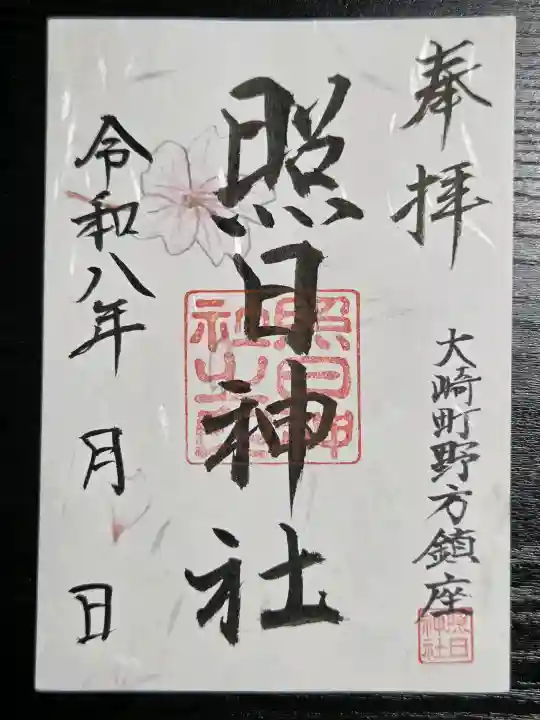 奉拝
大崎町野方鎮座
照日神社
照日神社之印
照日神社
令和八年 月 日